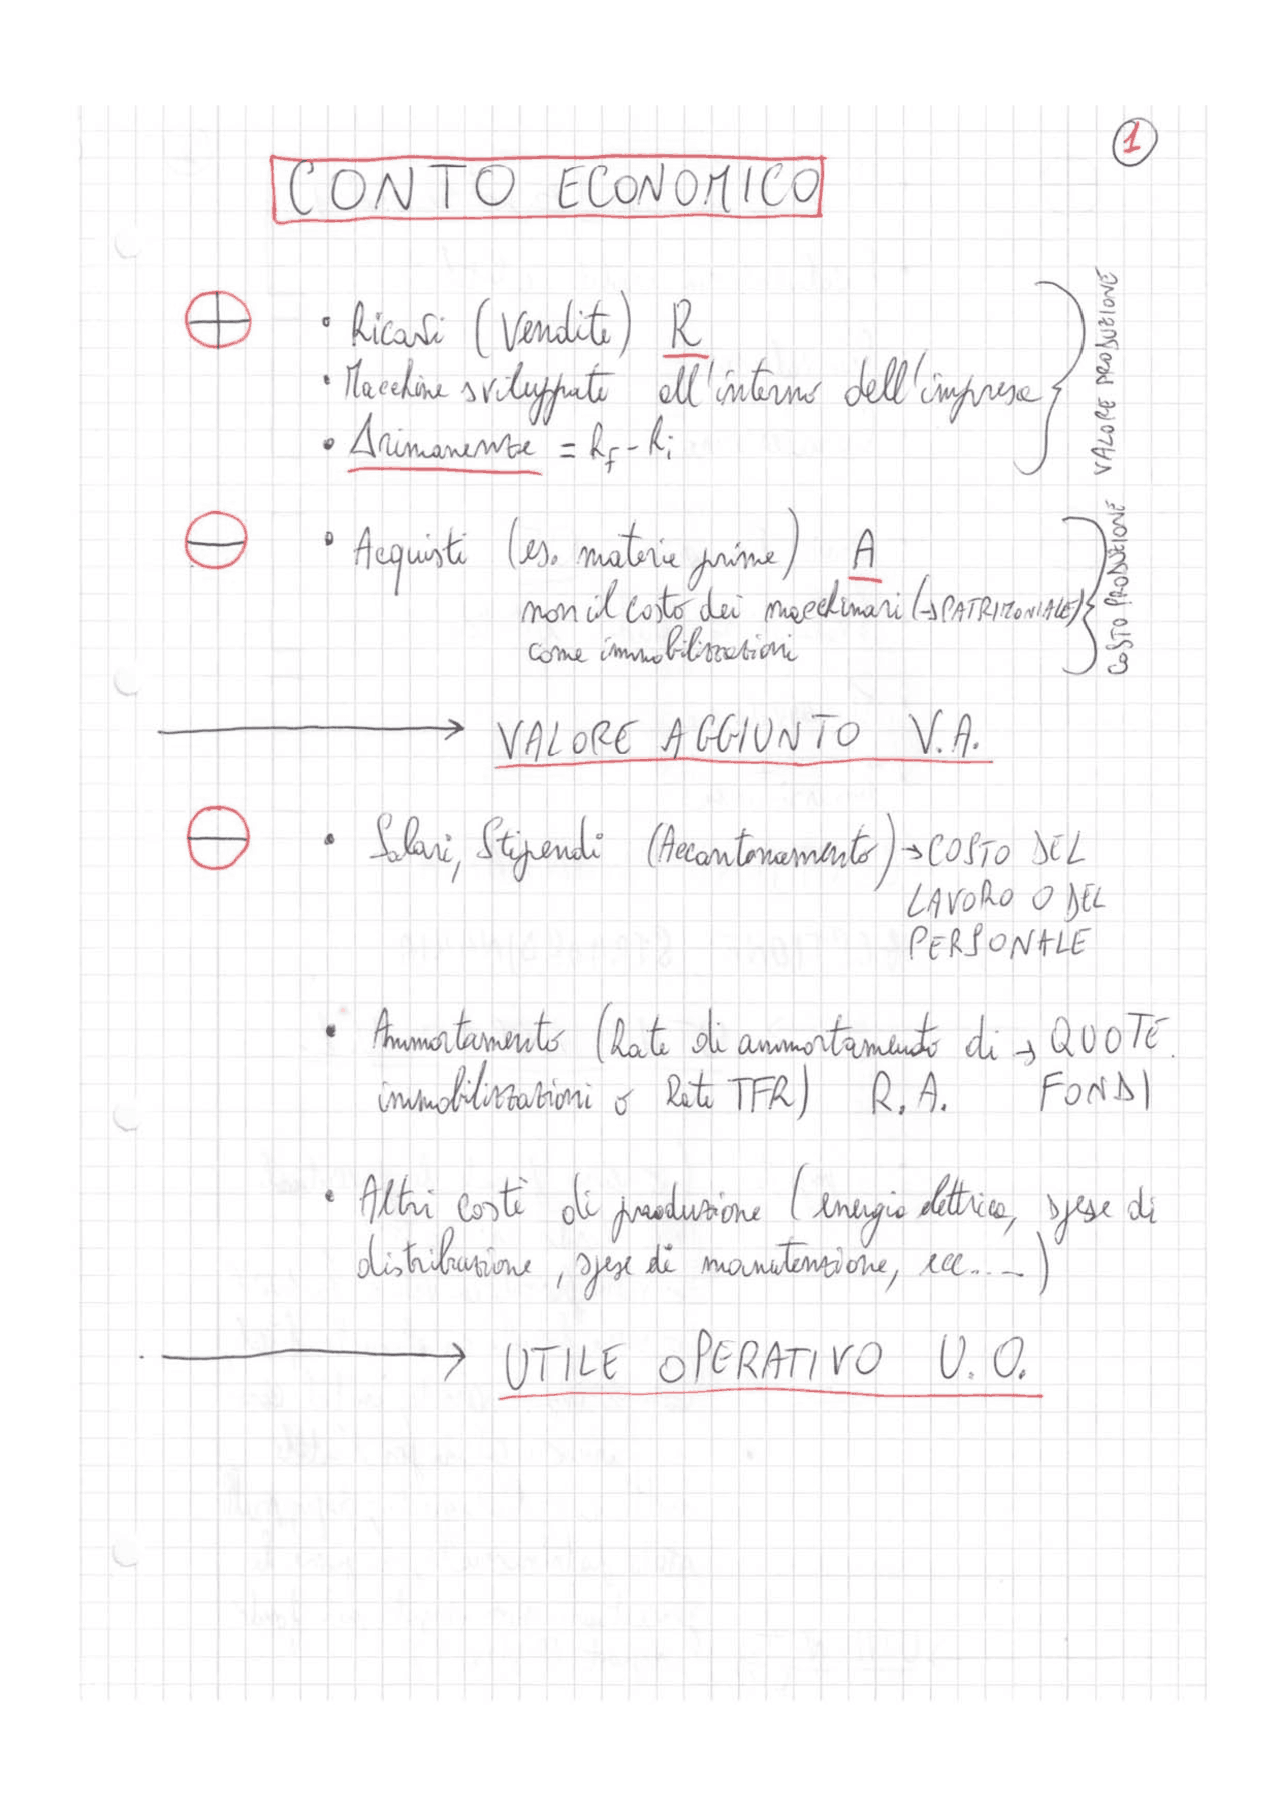 1
CONTO ECONOMICO
+ • Ricavi (Vendite) R
• Macchine sviluppate all'interno dell'impresa
• Δrimanenze = Rf - Ri
VALORE PRODUZIONE
- • Acquisti (es. materie prime) A
non il costo dei macchinari (→ PATRIMONIALE)
come immobilizzazioni
COSTO PRODUZIONE
→ VALORE AGGIUNTO V.A.
- • Salari, Stipendi (Accantonamento) → COSTO DEL
LAVORO O DEL
PERSONALE
• Ammortamento (Rate di ammortamento di → QUOTE
immobilizzazioni o Rate TFR) R.A. FONDI
• Altri costi di produzione (energia elettrica, spese di
distribuzione, spese di manutenzione, ecc....)
→ UTILE OPERATIVO U.O.